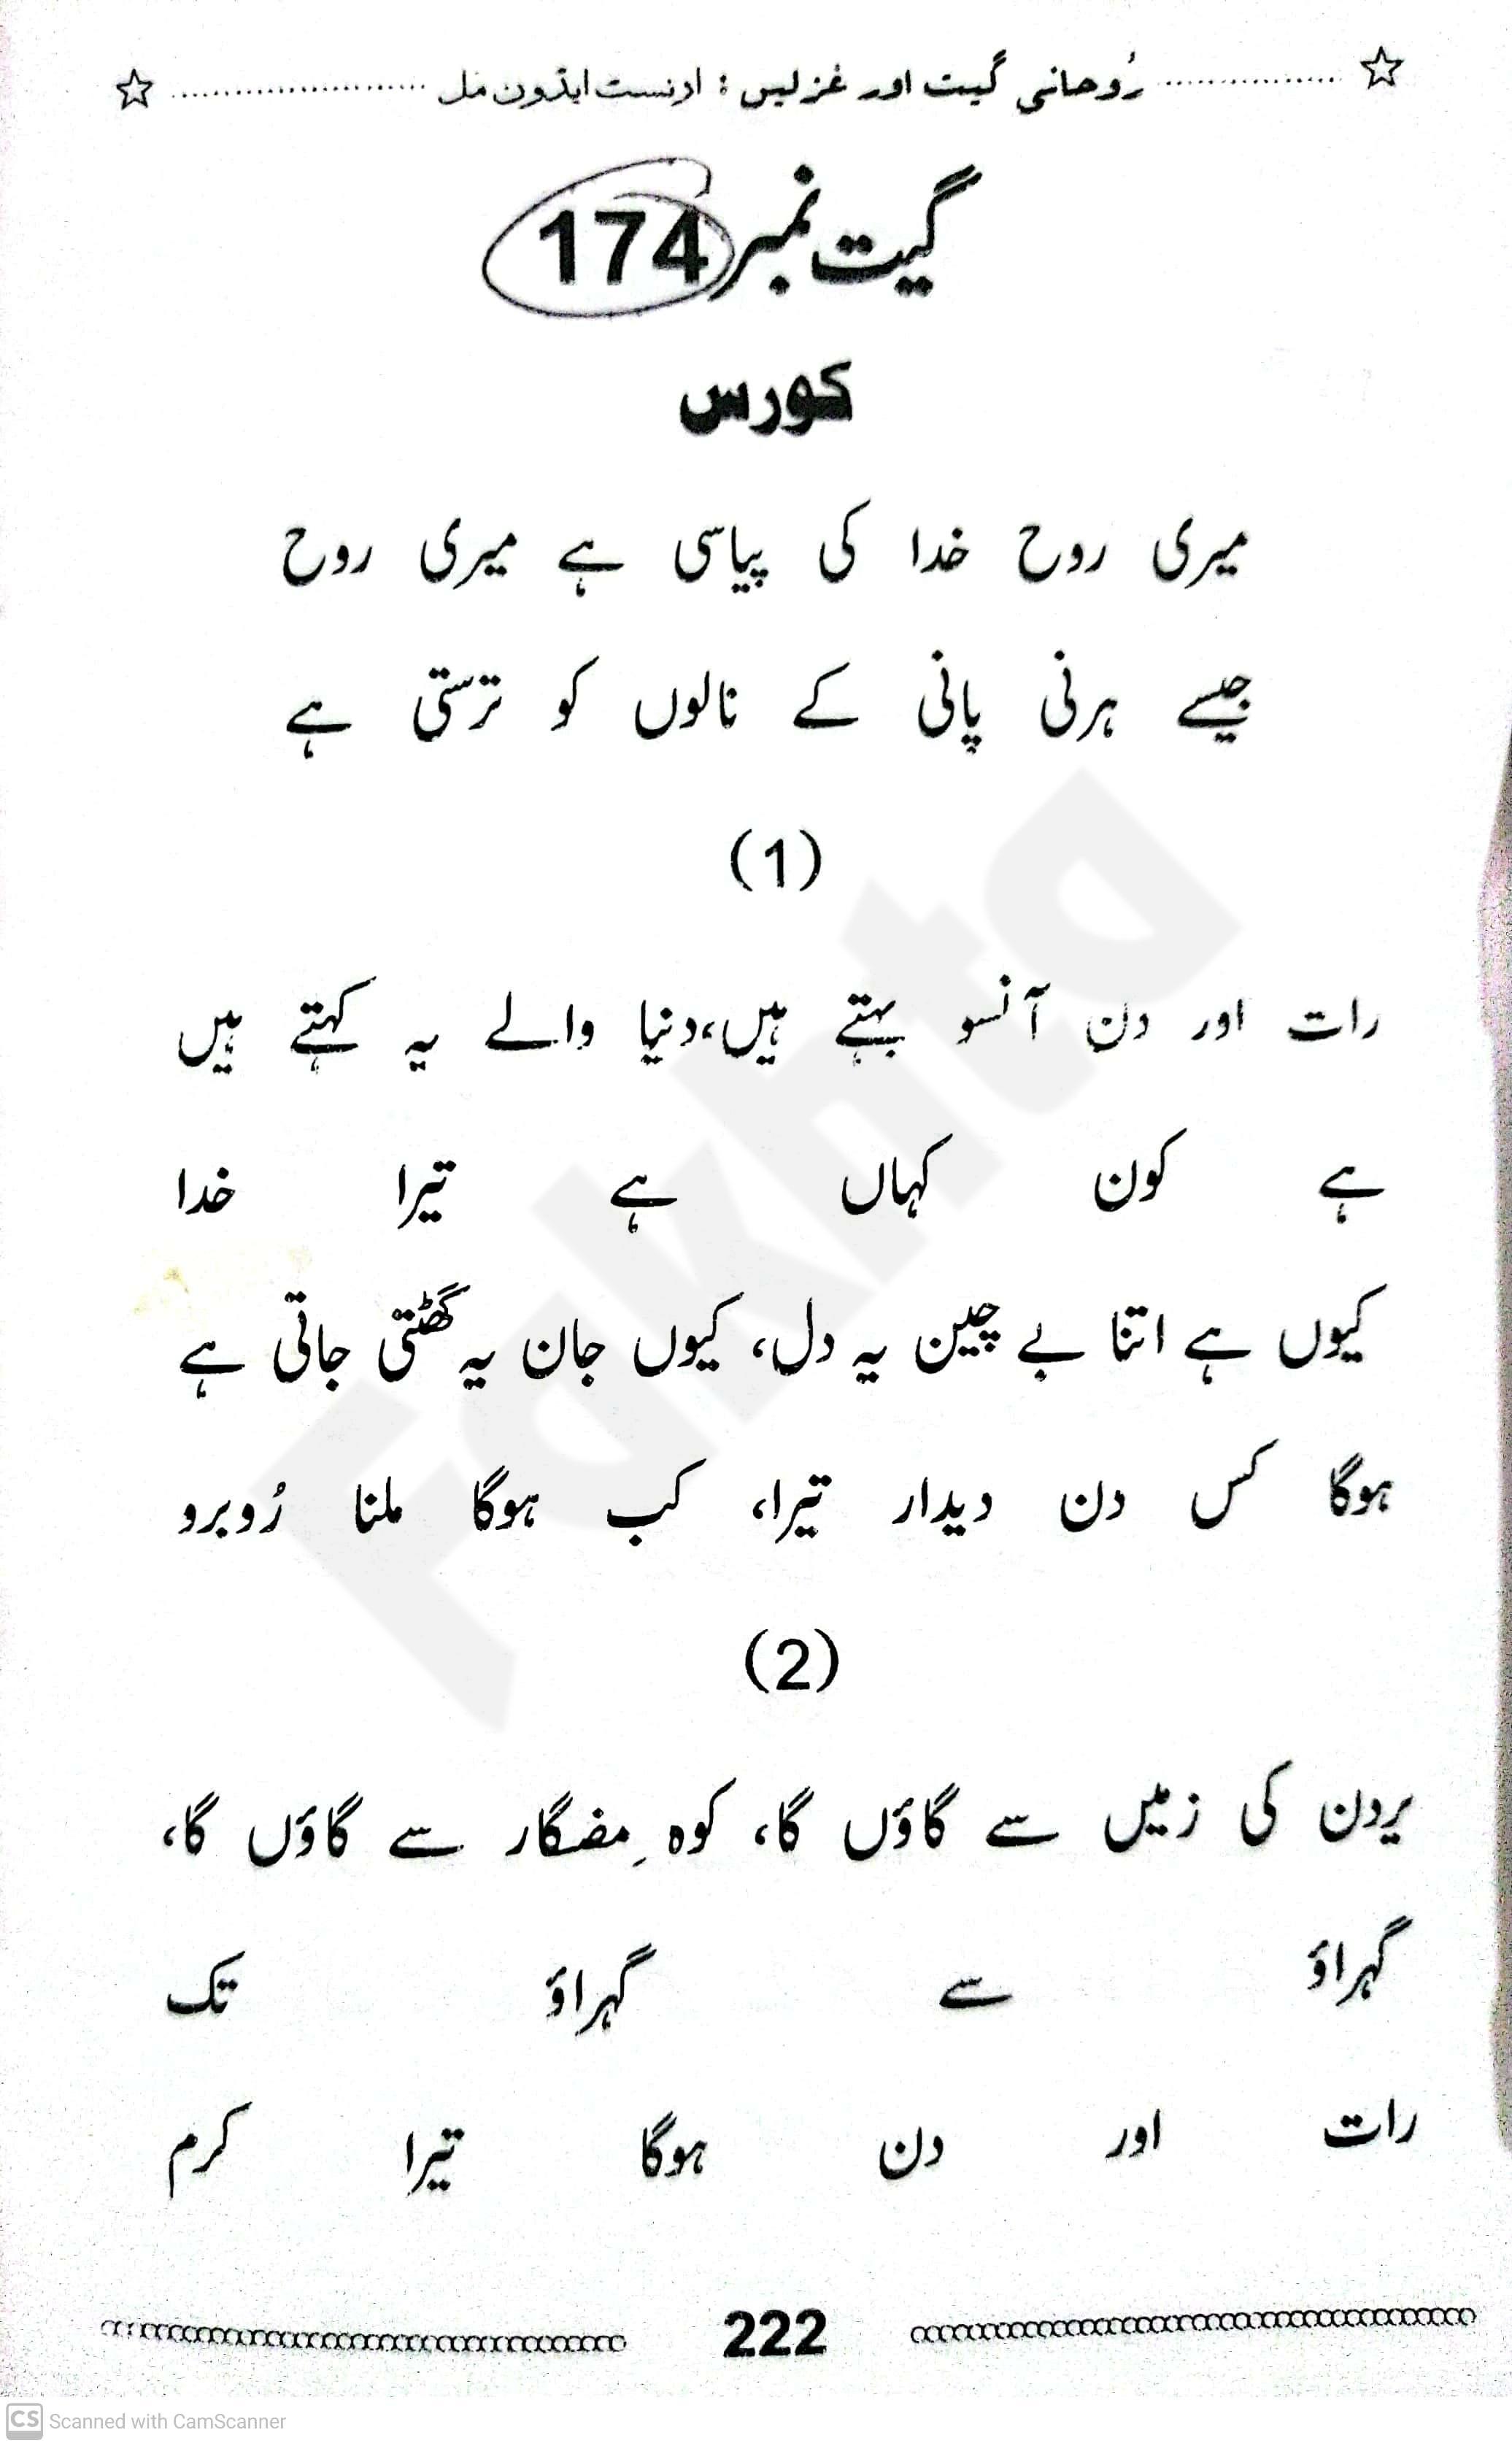 رُوحانی گیت اور غزلیں : ارنسٹ ایڈون مل
گیت نمبر 174
کورس
میری روح خدا کی پیاسی ہے میری روح
جیسے ہرنی پانی کے نالوں کو ترستی ہے
(1)
رات اور دن آنسو بہتے ہیں،دنیا والے یہ کہتے ہیں
ہے کون کہاں ہے تیرا خدا
کیوں ہے اتنا بے چین یہ دل، کیوں جان یہ گھٹتی جاتی ہے
ہوگا کس دن دیدار تیرا، کب ہوگا ملنا رُوبرو
(2)
یردن کی زمیں سے گاؤں گا، کوہ ِمضگار سے گاؤں گا،
گہراؤ سے گہراؤ تک
رات اور دن ہوگا تیرا کرم
222
Fakhta
CS Scanned with CamScanner